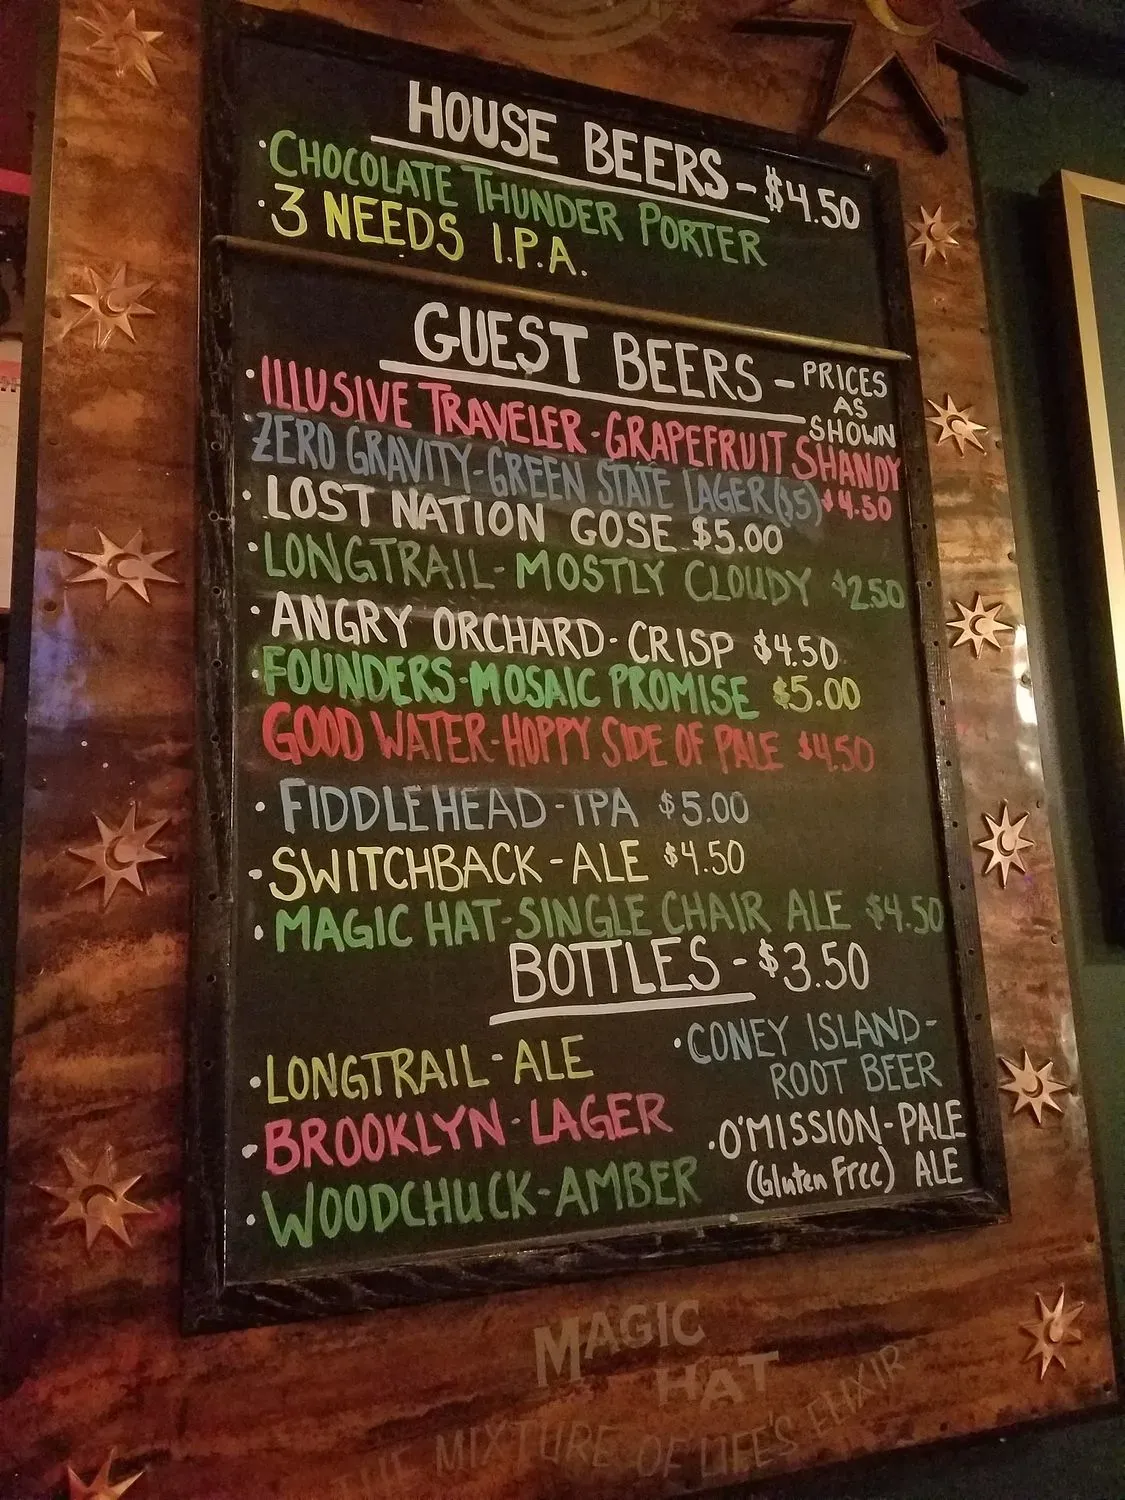 HOUSE BEERS - $4.50
· CHOCOLATE THUNDER PORTER
· 3 NEEDS I.P.A.
GUEST BEERS - PRICES
AS
SHOWN
· ILLUSIVE TRAVELER - GRAPEFRUIT SHANDY
$4.50
· ZERO GRAVITY - GREEN STATE LAGER ($5)
· LOST NATION GOSE $5.00
· LONGTRAIL - MOSTLY CLOUDY $2.50
· ANGRY ORCHARD - CRISP $4.50
· FOUNDERS - MOSAIC PROMISE $5.00
GOOD WATER - HOPPY SIDE OF PALE $4.50
· FIDDLEHEAD - IPA $5.00
· SWITCHBACK - ALE $4.50
· MAGIC HAT - SINGLE CHAIR ALE $4.50
BOTTLES - $3.50
· LONGTRAIL - ALE
· BROOKLYN - LAGER
· WOODCHUCK - AMBER
· CONEY ISLAND -
ROOT BEER
· O'MISSION - PALE
(Gluten Free) ALE
MAGIC
HAT
THE MIXTURE OF LIFE'S ELIXIR